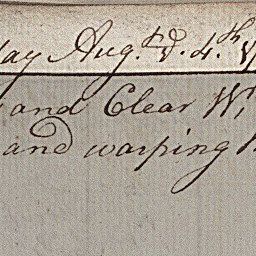 day Aug.st 4.th
and Clear Wr
and warping